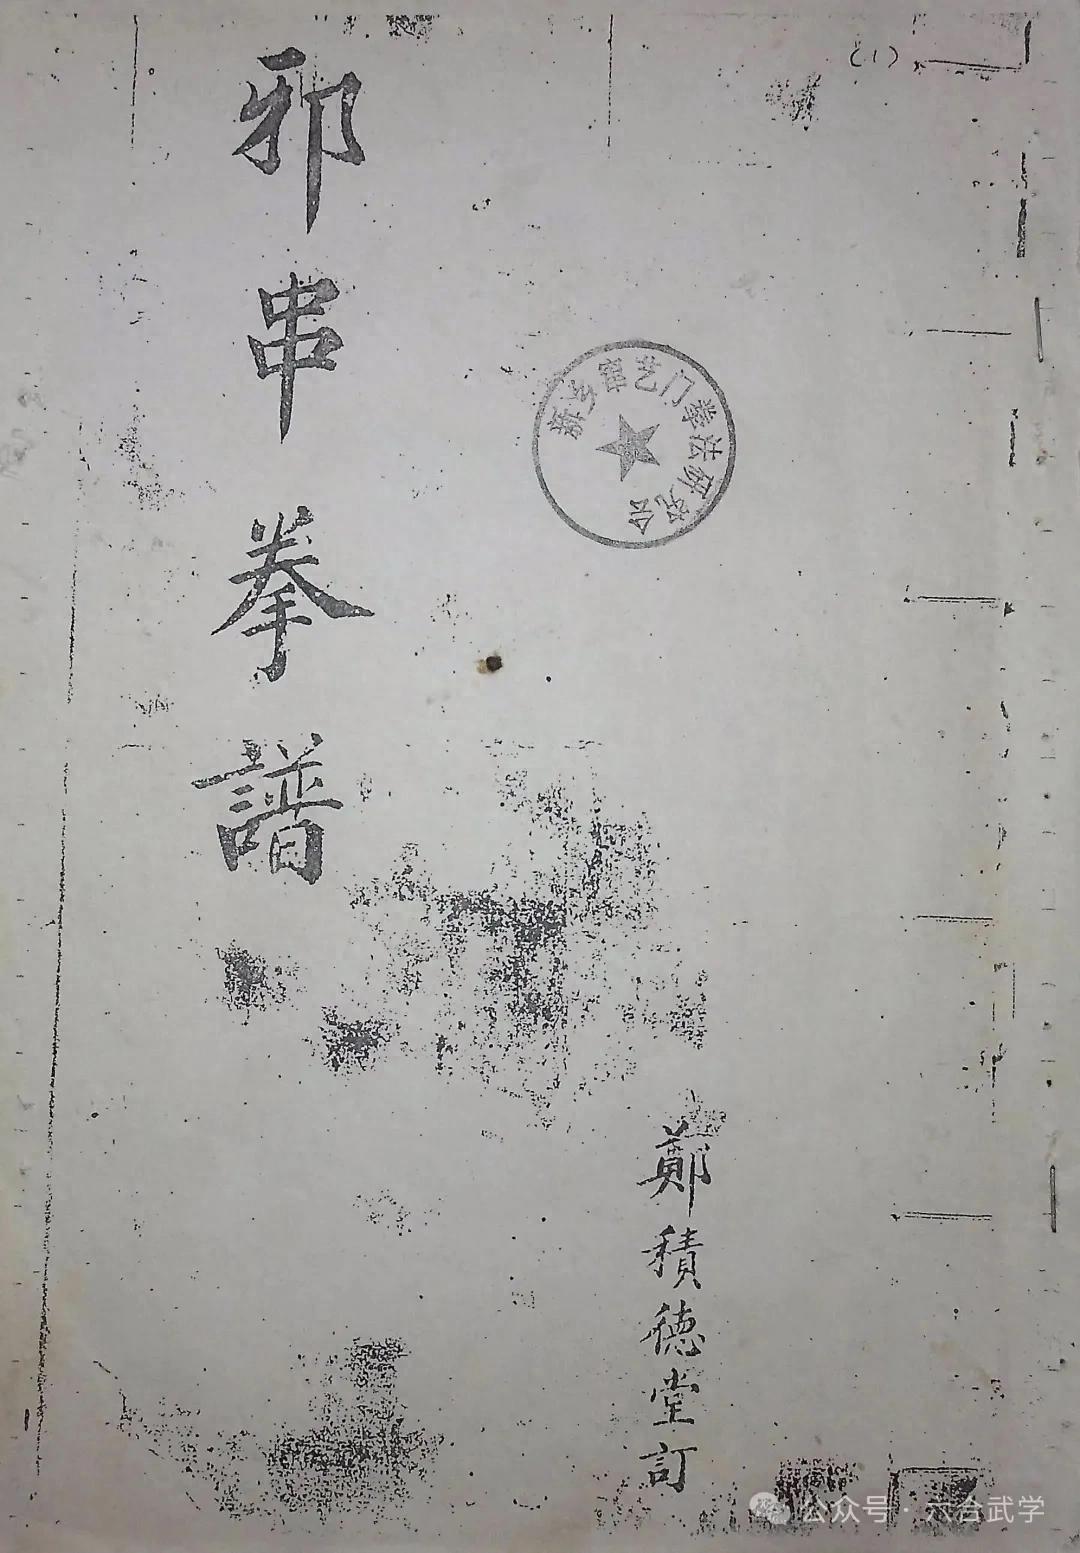 (1)
邪串拳譜
新乡窑艺门拳法研究会
鄭積德堂訂
公众号·六合武学